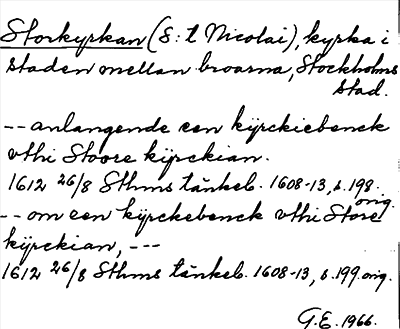 Storkyrkan (S:t Nicolai), kyrka i
staden mellan broarna, Stockholms
stad.
-- anlangende een kÿrckiebenck
vthi Stoore kÿrckian.
1612 26/8 Sthms tänkeb. 1608-13, s. 198.
orig.
-- om een kÿrckebenck vthi Store
kÿrckian, ---
1612 26/8 Sthms tänkeb. 1608-13, s. 199 orig.
G.E. 1966.